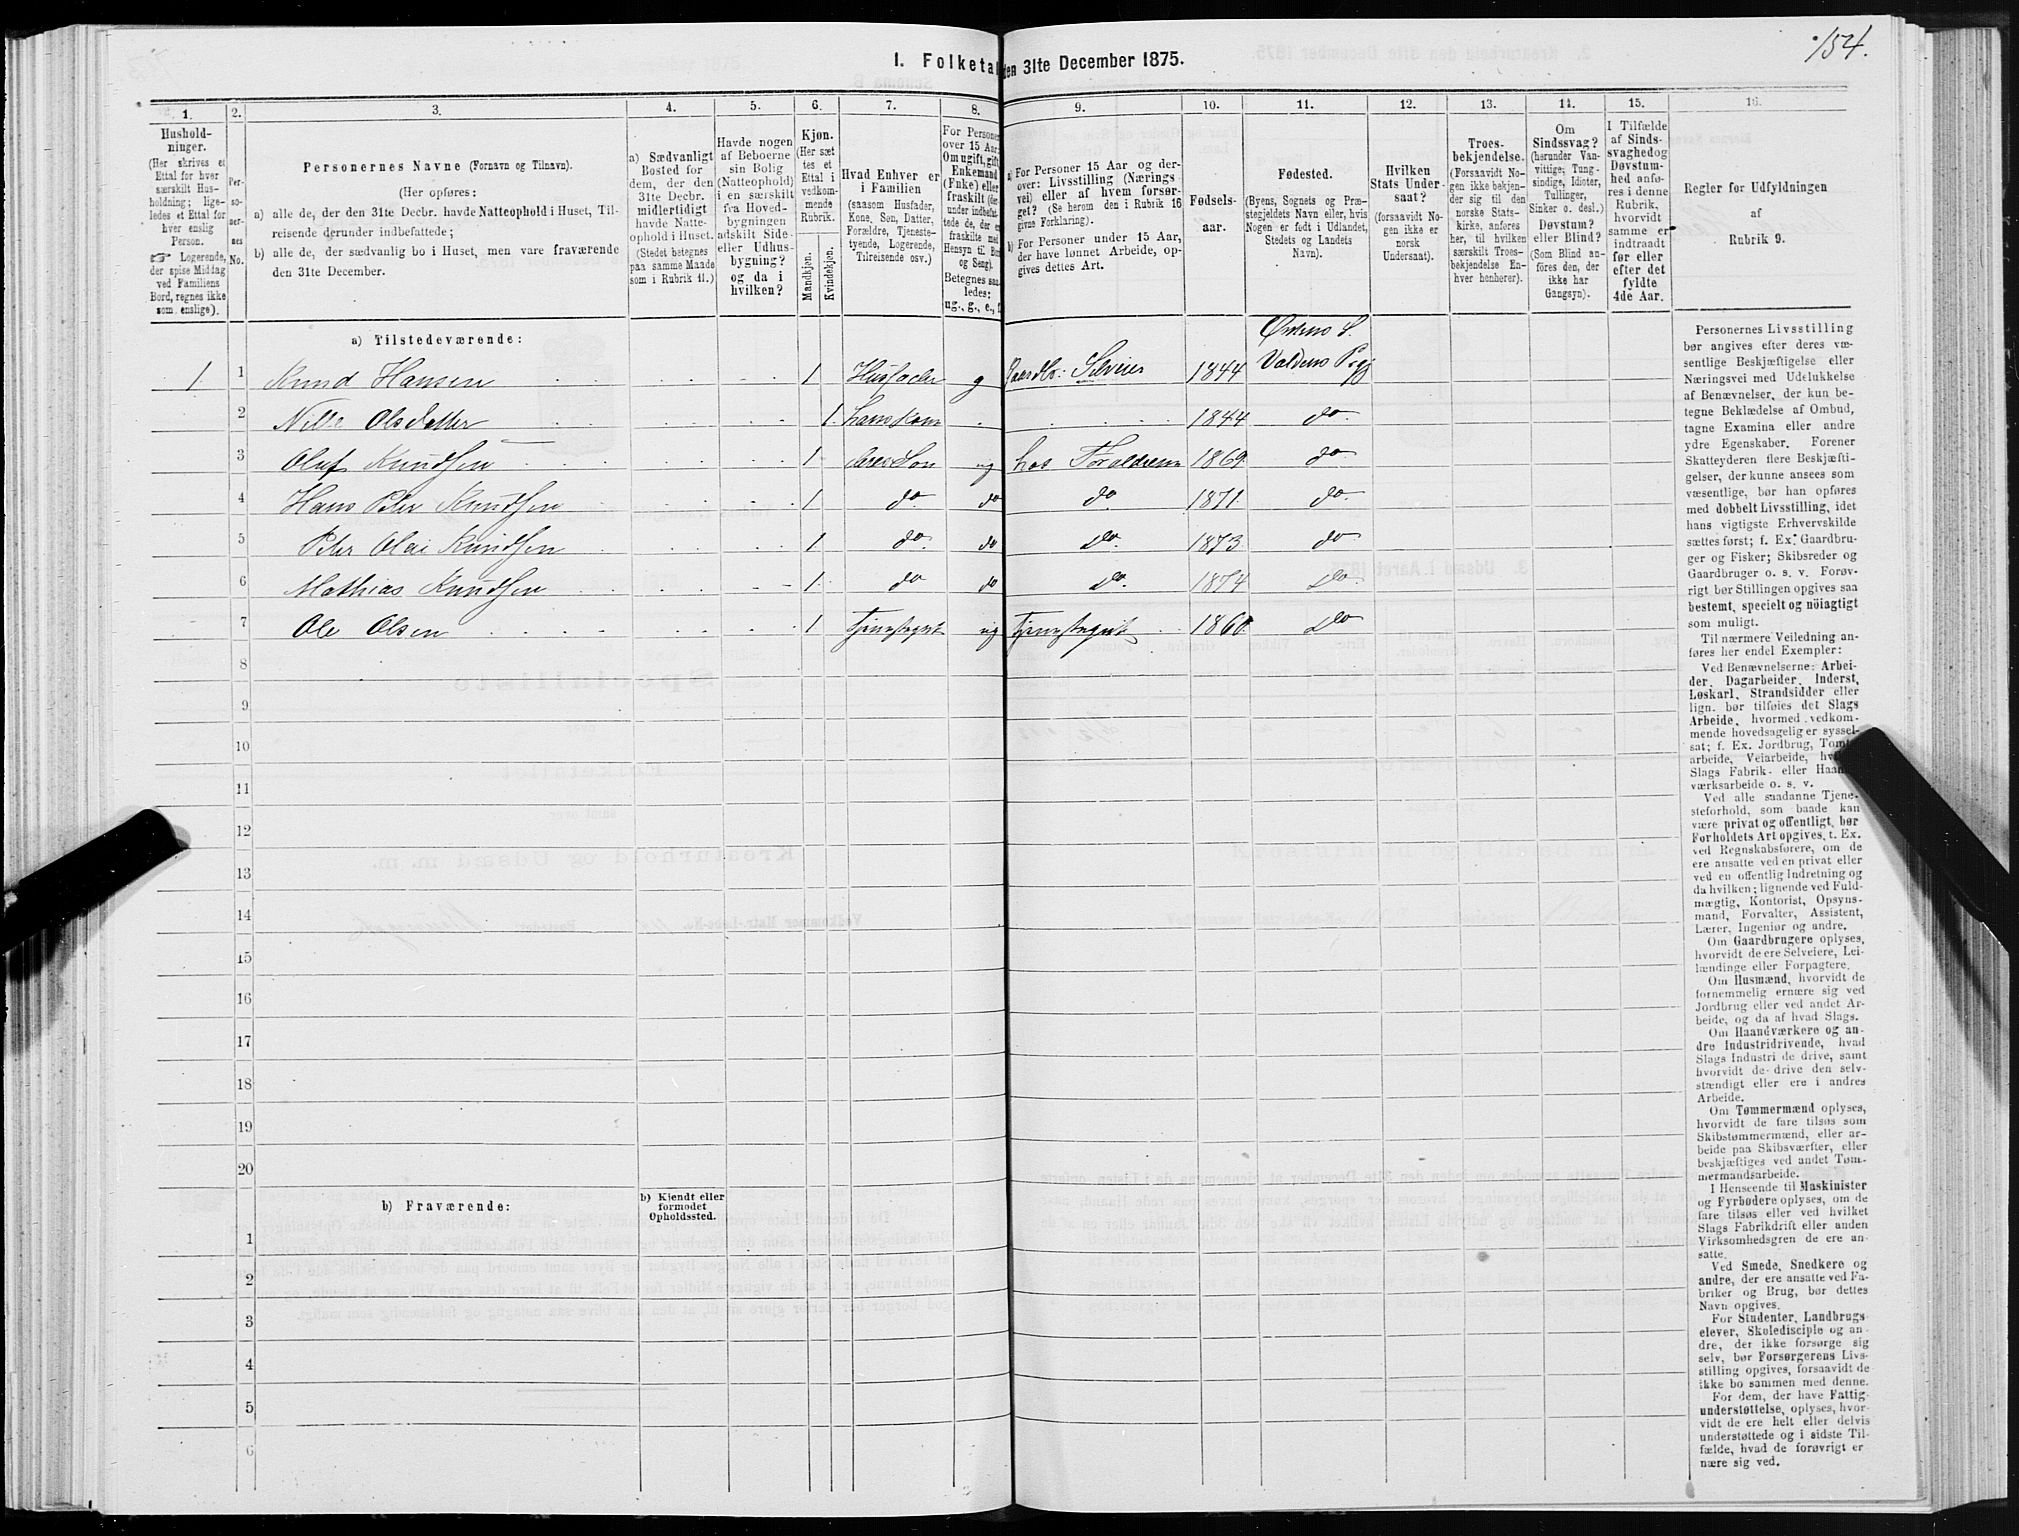 154.
1. Folketal den 31te December 1875.
1. 2. 3. 4. 5. 6. 7. 8. 9. 10. 11. 12. 13. 14. 15. 16.
Hushold-
ninger.
(Her skrives et
Ettal for hver
særskilt Hus-
holdning; lige-
ledes et Ettal for
hver enslig
Person.
☞ Logerende,
der spise Middag
ved Familiens
Bord, regnes ikke
som enslige).
Per-
so-
ner-
nes
No.
Personernes Navne (Fornavn og Tilnavn).
(Her opføres:
a) alle de, der den 31te Decbr. havde Natteophold i Huset, Til-
reisende derunder indbefattede;
b) alle de, der sædvanlig bo i Huset, men vare fraværende
den 31te December.
a) Sædvanligt
Bosted for
dem, der den
31te Decbr.
midlertidigt
havde Natte-
ophold i Huset.
(Stedet betegnes
paa samme Maade
som i Rubrik 11.)
Havde nogen
af Beboerne
sin Bolig
(Natteophold)
i en særskilt
fra Hoved-
bygningen
adskilt Side-
eller Udhus-
bygning?
og da i
hvilken?
Kjøn.
(Her sæt-
tes et
Ettal i
vedkom-
mende
Rubrik.
Mandkjøn.
Kvindekjøn.
Hvad Enhver er
i Familien
(saasom Husfader,
Kone, Søn, Datter,
Forældre, Tjeneste-
tyende, Logerende,
Tilreisende osv.)
For Personer
over 15 Aar:
Om ugift, gift,
Enkemand
(Enke) eller
fraskilt (der-
under indbefat-
tede de, der er
fraskilte med
Hensyn til Bord
og Seng).
Betegnes saa-
ledes:
ug., g., e., f.
a) For Personer 15 Aar og der-
over: Livsstilling (Nærings-
vei) eller af hvem forsør-
get? (Se herom den i Rubrik 16
givne Forklaring).
b) For Personer under 15 Aar,
der have lønnet Arbeide, op-
gives dettes Art.
Fødsels-
aar.
Fødested.
(Byens, Sognets og Præ-
stegjeldets Navn eller, hvis
Nogen er født i Udlandet,
Stedets og Landets
Navn).
Hvilken
Stats Under-
saat?
(forsaavidt No-
gen ikke er
norsk
Undersaat).
Troes-
bekjendelse.
(Forsaavidt No-
gen ikke bekjen-
der sig til den
norske Stats-
kirke, anføres
her, til hvilken
særskilt Troes-
bekjendelse En-
hver henhører).
Om
Sindssvag?
(herunder Van-
vittige; Tung-
sindige, Idioter,
Tullinger,
Sinker o. desl.)
Døvstum?
eller Blind?
(Som Blind an-
føres den, der
ikke har
Gangsyn).
I Tilfælde
af Sinds-
svaghed og
Døvstum-
hed anfø-
res i denne
Rubrik,
hvorvidt
samme er
indtraadt
før eller
efter det
fyldte
4de Aar.
Regler for Udfyldningen
af
Rubrik 9.
a) Tilstedeværende:
1 1 Knud Hansen 1 Husfader g Gaardbr: Selveier 1844 Valdens Pgj
2 Olsdatter 1 hans Kone 1844 do.
3 Oluf Knudsen 1 deres Søn ug hos Forældrene 1869 do
4 Hans Peter Knudsen 1 do. do do. 1871. do.
5 Peter Olai Knudsen 1 do. do Do. 1873 do
6 Mathias Knudsen 1 do do Do. 1874 Do
7 Ole Olsen 1 Tjenestegut ug Tjenestegut 1860 Do
8
9
10
11
12
13
14
15
16
17
18
19
20
b) Fraværende:
b) Kjendt eller
formodet
Opholdssted.
1
2
3
4
5
6
Personernes Livsstilling
bør angives efter deres væ-
sentlige Beskjæftigelse eller
Næringsvei med Udelukkelse
af Benævnelser, der kun be-
tegne Beklædelse af Ombud,
tagne Examina eller andre
ydre Egenskaber. Forener
Skatteyderen flere Beskjæfti-
gelser, der kunne ansees som
væsentlige, bør han opføres
med dobbelt Livsstilling, idet
hans vigtigste Erhvervskilde
sættes først; f. Ex. Gaardbru-
ger og Fisker; Skibsreder og
Gaardbruger o. s. v. Forøv-
rigt bør Stillingen opgives saa
bestemt, specielt og nöiagtigt
som muligt.
Til nærmere Veiledning an-
føres her endel Exempler:
Ved Benævnelserne: Arbei-
der, Dagarbeider, Inderst,
Løskarl, Strandsidder eller
lign. bør tilføies det Slags
Arbeide, hvormed vedkom-
mende hovedsagelig er syssel-
sat; f. Ex. Jordbrug, Tomte-
arbeide, Veiarbeide, hvilket
Slags Fabrik- eller Haand-
værksarbeide o. s. v.
Ved alle saadanne Tjene-
steforhold, som baade kan
være privat og offentligt, bør
Forholdets Art opgives, t. Ex.
ved Regnskabsførere, om de
ere ansatte ved en privat eller
ved en offentlig Indretning og
da hvilken; lignende ved Fuld-
mægtig, Kontorist, Opsyns-
mand, Forvalter, Assistent,
Lærer, Ingeniør og andre.
Om Gaardbrugere oplyses,
hvorvidt de ere Selveiere, Lei-
lændinge eller Forpagtere.
Om Husmænd, hvorvidt de
fornemmelig ernære sig ved
Jordbrug eller ved andet Ar-
beide, og da af hvad Slags.
Om Haandværkere og an-
dre Industridrivende, hvad
Slags Industri de drive, samt
hvorvidt de drive den selv-
stændigt eller ere i andres
Arbeide.
Om Tømmermænd oplyses,
hvorvidt de fare tilsøs som
Skibstømmermænd, eller ar-
beide paa Skibsværfter, eller
beskjæftiges ved andet Tøm-
mermandsarbeide.
I Henseende til Maskinister
og Fyrbødere oplyses, om de
fare tilsøs eller ved hvilket
Slags Fabrikdrift eller anden
Virksomhedsgren de ere an-
satte.
Ved Smede, Snedkere og
andre, der ere ansatte ved Fa-
briker og Brug, bør dettes
Navn opgives.
For Studenter, Landbrugs-
elever, Skoledisciple og an-
dre, der ikke forsørge sig
selv, bør Forsørgerens Livs-
stilling opgives, forsaavidt de
ikke bo sammen med denne.
For dem, der have Fattig-
understøttelse, oplyses, hvor-
vidt de ere helt eller delvis
understøttede og i sidste Til-
fælde, hvad de forøvrigt er
nære sig ved.